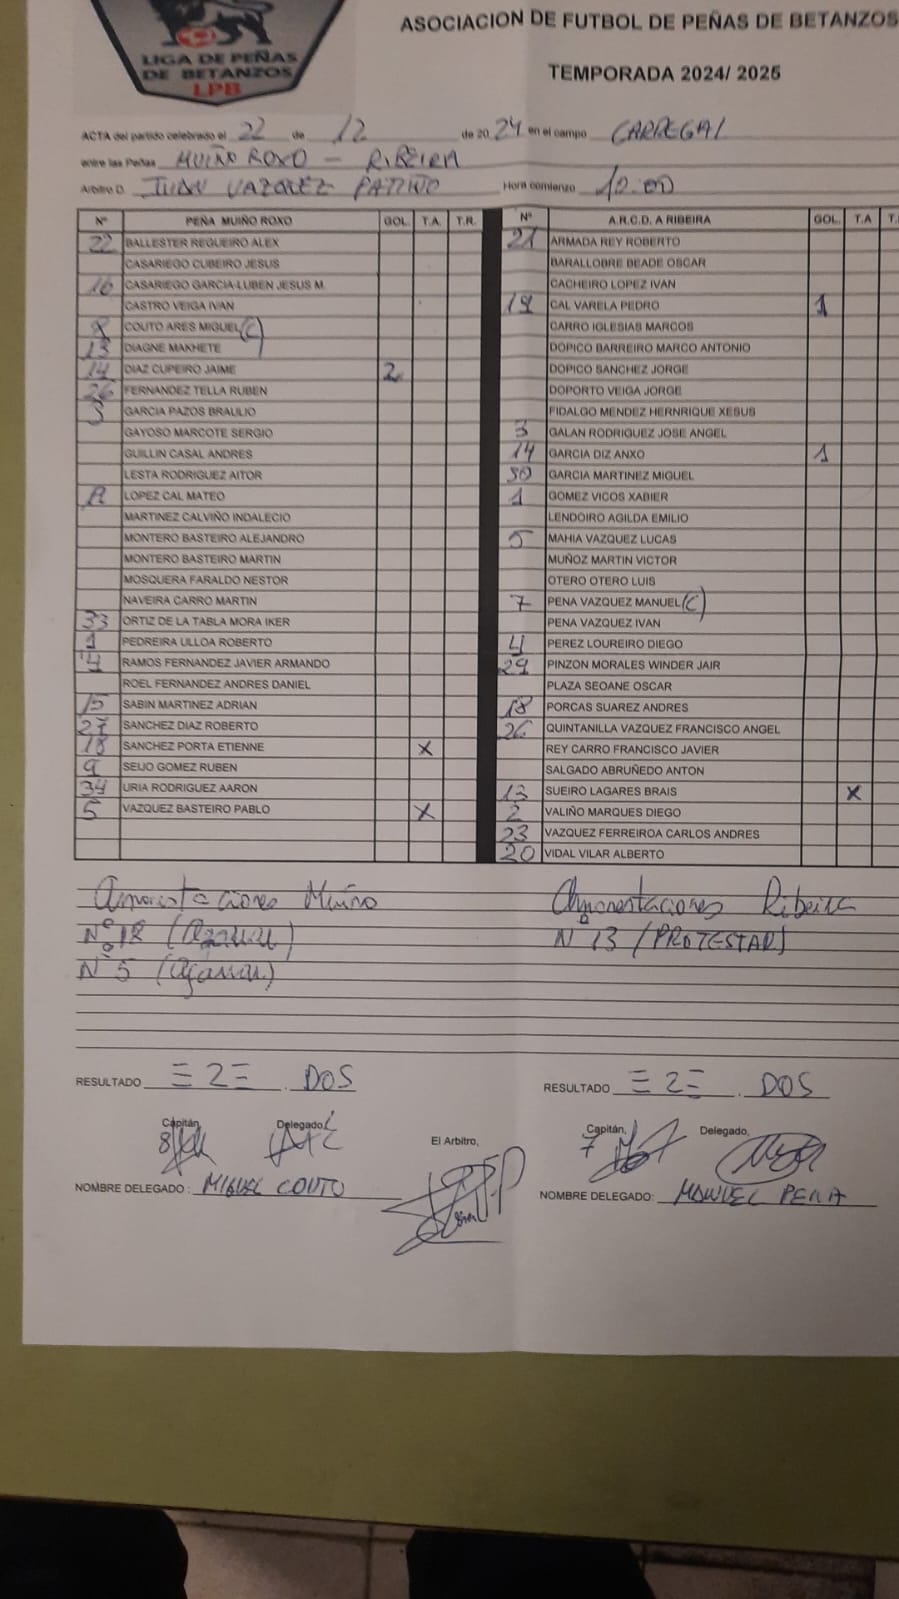 ASOCIACION DE FUTBOL DE PEÑAS DE BETANZOS
LIGA DE PEÑAS
DE BETANZOS
LPB
TEMPORADA 2024/ 2025
ACTA del partido celebrado el 22 de 12 de 20 24 en el campo CARREGAL
entre las Peñas MUIÑO ROXO - RIBEIRA
Arbitro D. JUAN VAZQUEZ PATIÑO Hora comienzo 10:00
Nº PEÑA MUIÑO ROXO GOL. T.A. T.R. Nº A.R.C.D. A RIBEIRA GOL. T.A
22 BALLESTER REGUEIRO ALEX 21 ARMADA REY ROBERTO
CASARIEGO CUBEIRO JESUS BARALLOBRE BEADE OSCAR
16 CASARIEGO GARCIA-LUBEN JESUS M. CACHEIRO LOPEZ IVAN
CASTRO VEIGA IVAN 19 CAL VARELA PEDRO 1
8 COUTO ARES MIGUEL (C) CARRO IGLESIAS MARCOS
13 DIAGNE MAKHETE DOPICO BARREIRO MARCO ANTONIO
14 DIAZ CUPEIRO JAIME 2 DOPICO SANCHEZ JORGE
26 FERNANDEZ TELLA RUBEN DOPORTO VEIGA JORGE
3 GARCIA PAZOS BRAULIO FIDALGO MENDEZ HERNRIQUE XESUS
GAYOSO MARCOTE SERGIO 3 GALAN RODRIGUEZ JOSE ANGEL
GUILLIN CASAL ANDRES 14 GARCIA DIZ ANXO 1
LESTA RODRIGUEZ AITOR GARCIA MARTINEZ MIGUEL
LOPEZ CAL MATEO 1 GOMEZ VICOS XABIER
MARTINEZ CALVIÑO INDALECIO LENDOIRO AGILDA EMILIO
MONTERO BASTEIRO ALEJANDRO 5 MAHIA VAZQUEZ LUCAS
MONTERO BASTEIRO MARTIN MUÑOZ MARTIN VICTOR
MOSQUERA FARALDO NESTOR OTERO OTERO LUIS
NAVEIRA CARRO MARTIN 7 PENA VAZQUEZ MANUEL (C)
33 ORTIZ DE LA TABLA MORA IKER PENA VAZQUEZ IVAN
1 PEDREIRA ULLOA ROBERTO 4 PEREZ LOUREIRO DIEGO
4 RAMOS FERNANDEZ JAVIER ARMANDO 29 PINZON MORALES WINDER JAIR
ROEL FERNANDEZ ANDRES DANIEL PLAZA SEOANE OSCAR
15 SABIN MARTINEZ ADRIAN 18 PORCAS SUAREZ ANDRES
27 SANCHEZ DIAZ ROBERTO 26 QUINTANILLA VAZQUEZ FRANCISCO ANGEL
18 SANCHEZ PORTA ETIENNE X REY CARRO FRANCISCO JAVIER
9 SEIJO GOMEZ RUBEN SALGADO ABRUÑEDO ANTON
34 URIA RODRIGUEZ AARON 13 SUEIRO LAGARES BRAIS X
5 VAZQUEZ BASTEIRO PABLO X 2 VALIÑO MARQUES DIEGO
23 VAZQUEZ FERREIROA CARLOS ANDRES
20 VIDAL VILAR ALBERTO
Amonestaciones Muiño Amonestaciones Ribeira
Nº 18 (Agarrar) Nº 13 (PROTESTAR)
Nº 5 (Agarrar)
RESULTADO =2= DOS RESULTADO =2= DOS
Capitán, Delegado, El Arbitro, Capitán, Delegado,
8 7
NOMBRE DELEGADO: MIGUEL COUTO NOMBRE DELEGADO: MANUEL PENA